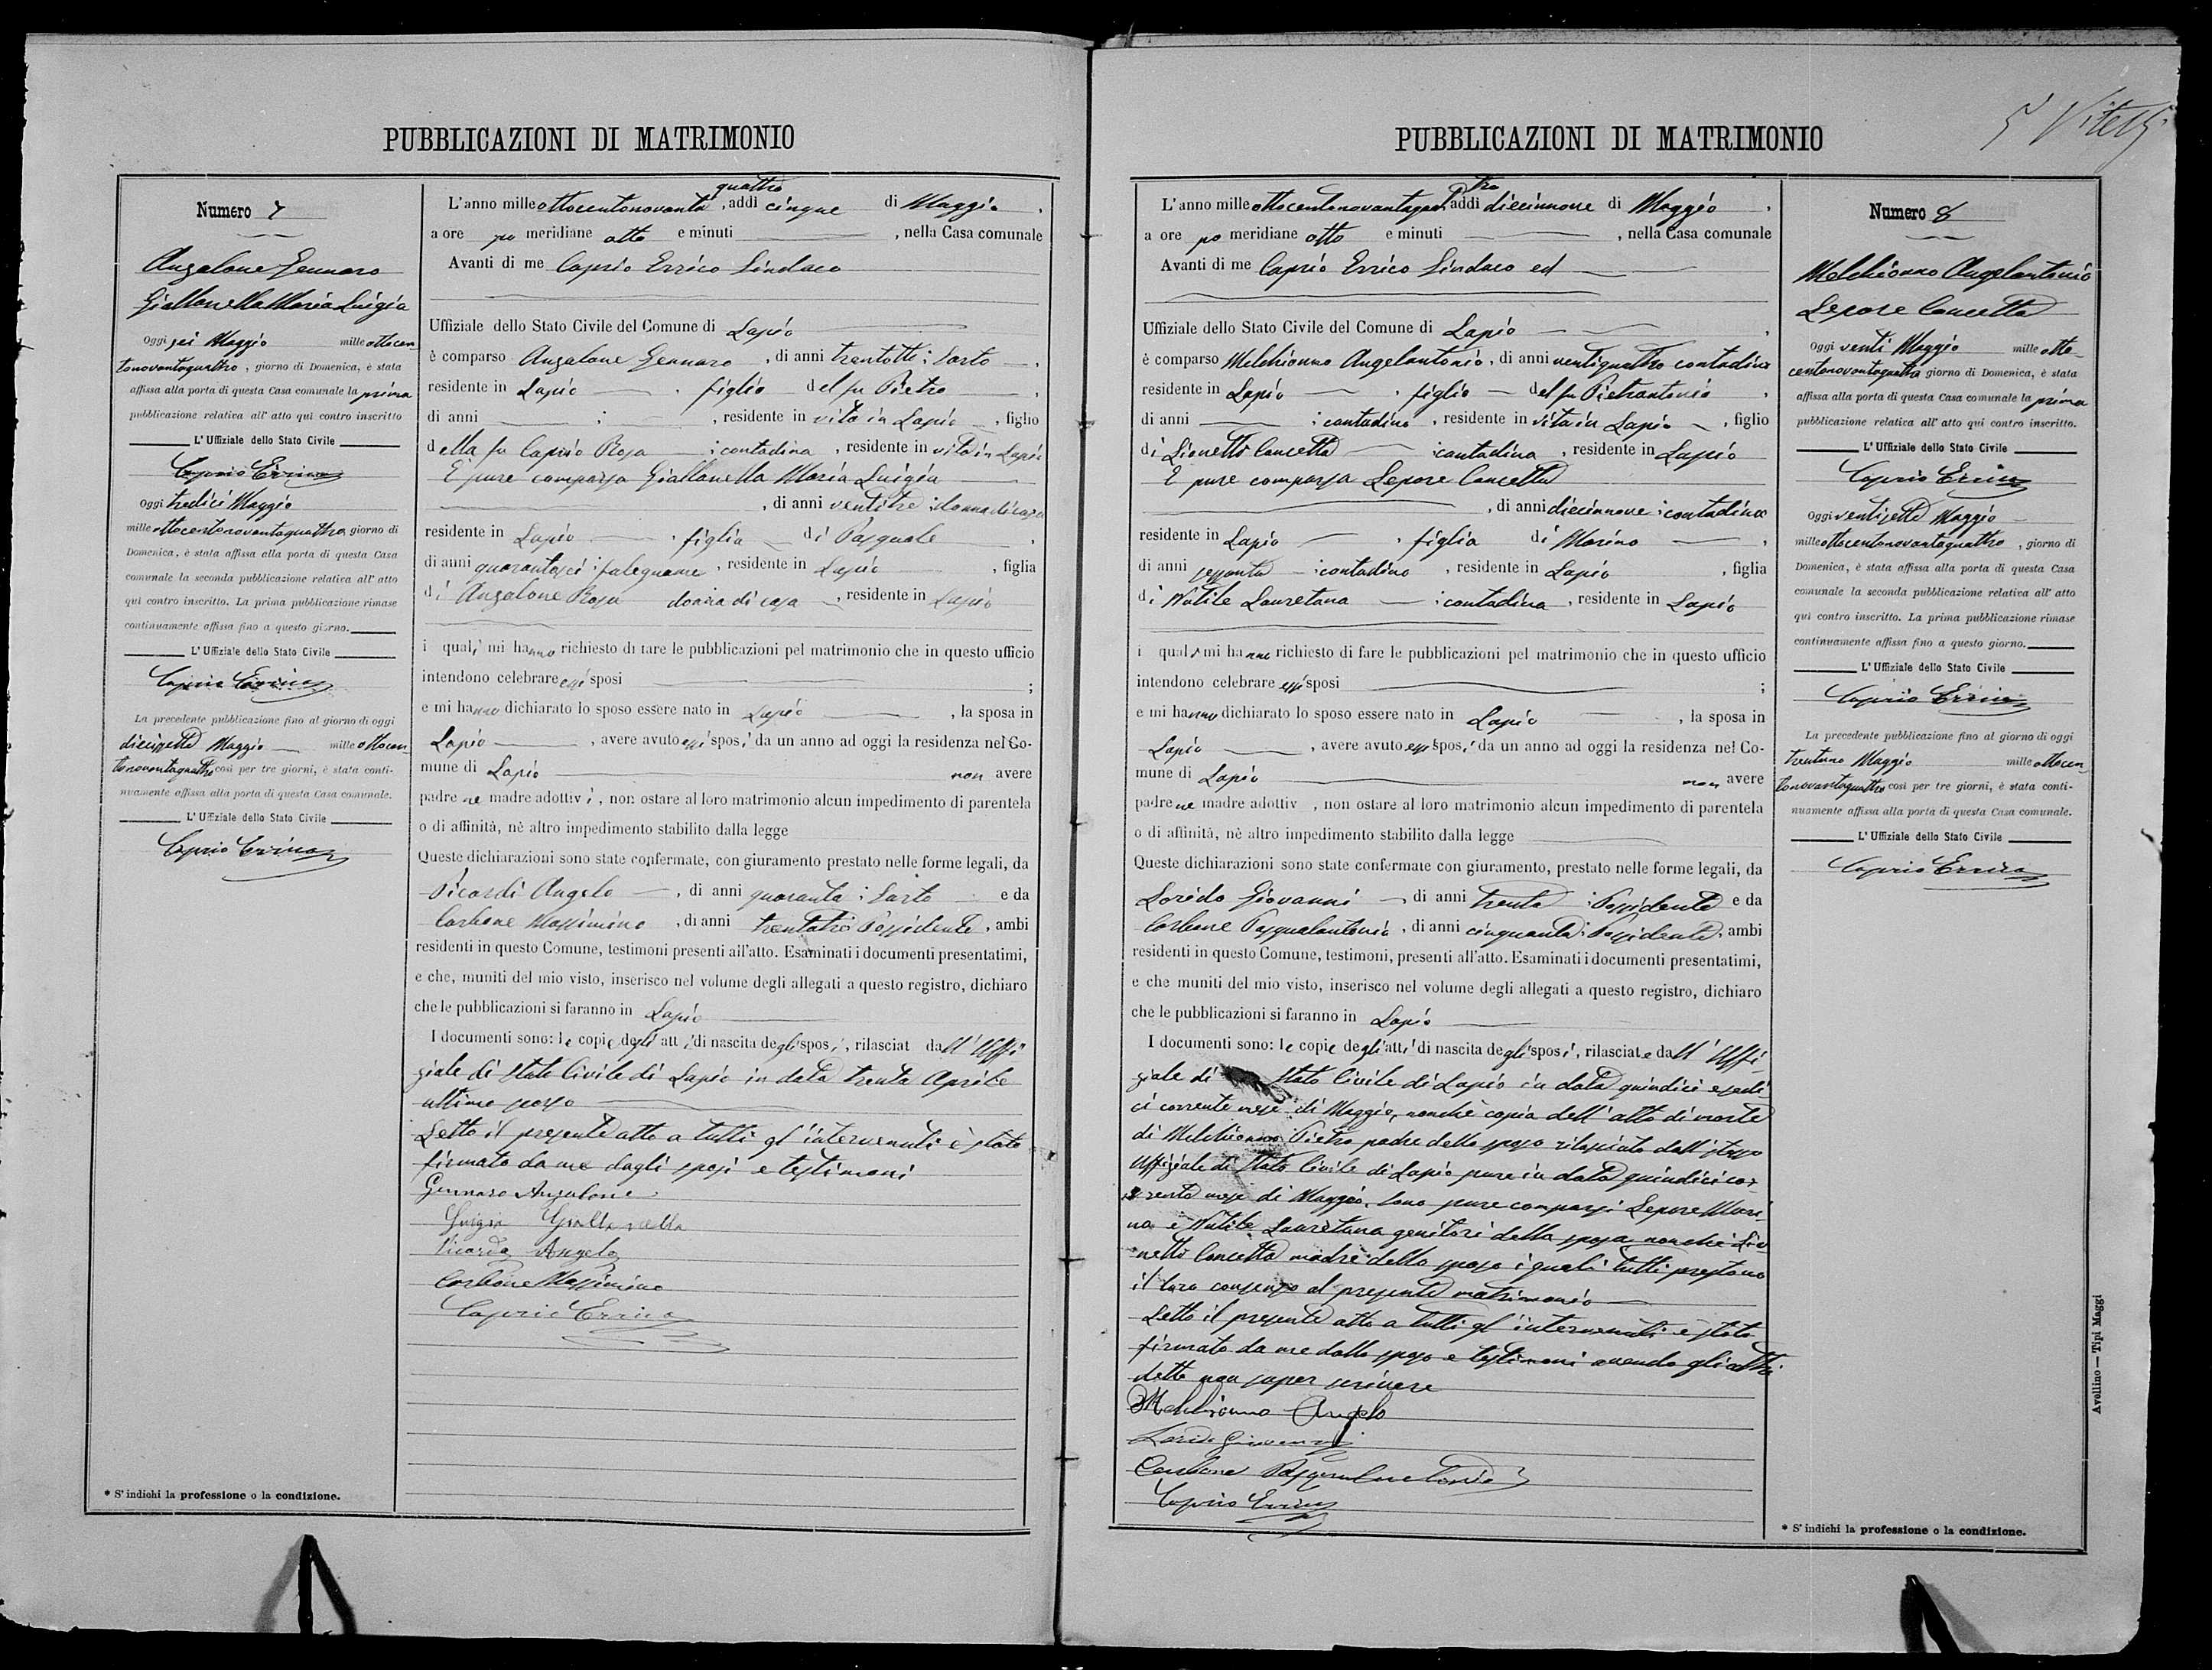 PUBBLICAZIONI DI MATRIMONIO
Numero 7
Anzalone Gennaro
Giallonella Maria Luigia
Oggi sei Maggio mille ottocen
tonovantaquattro, giorno di Domenica, è stata
affissa alla porta di questa Casa comunale la prima
pubblicazione relativa all' atto qui contro inscritto
L' Uffiziale dello Stato Civile
Caprio Errico
Oggi tredici Maggio
mille ottocentonovantaquattro, giorno di
Domenica, è stata affissa alla porta di questa Casa
comunale la seconda pubblicazione relativa all' atto
qui contro inscritto. La prima pubblicazione rimase
continuamente affissa fino a questo giorno.
L' Uffiziale dello Stato Civile
Caprio Errico
La precedente pubblicazione fino al giorno di oggi
diecissette Maggio mille ottocen
tonovantaquattro così per tre giorni, è stata conti-
nuamente affissa alla porta di questa Casa comunale.
L' Uffiziale dello Stato Civile
Caprio Errico
* S' indichi la professione o la condizione.
quattro
L'anno mille ottocentonovanta, addì cinque di Maggio,
a ore po meridiane otto e minuti , nella Casa comunale
Avanti di me Caprio Errico Sindaco
Uffiziale dello Stato Civile del Comune di Lapio
è comparso Anzalone Gennaro, di anni trentotto; Sarto,
residente in Lapio, figlio del fu Pietro,
di anni ; , residente in vita in Lapio, figlio
della fu Caprio Rosa ; contadina, residente in vita in Lapio
E pure comparsa Giallonella Maria Luigia
, di anni ventitre; donna di casa
residente in Lapio, figlia di Pasquale,
di anni quarantasei; falegname, residente in Lapio, figlia
di Anzalone Rosa donna di casa, residente in Lapio
i quali mi hanno richiesto di fare le pubblicazioni pel matrimonio che in questo ufficio
intendono celebrare essi sposi ;
e mi hanno dichiarato lo sposo essere nato in Lapio, la sposa in
Lapio, avere avuto essi sposi da un anno ad oggi la residenza nel Co-
mune di Lapio non avere
padre ne madre adottivi, non ostare al loro matrimonio alcun impedimento di parentela
o di affinità, nè altro impedimento stabilito dalla legge
Queste dichiarazioni sono state confermate, con giuramento prestato nelle forme legali, da
Picardi Angelo, di anni quaranta; Sarto e da
Carbone Massimino, di anni trentatre Possidente, ambi
residenti in questo Comune, testimoni presenti all'atto. Esaminati i documenti presentatimi,
e che, muniti del mio visto, inserisco nel volume degli allegati a questo registro, dichiaro
che le pubblicazioni si faranno in Lapio
I documenti sono: le copie degli atti di nascita degli sposi, rilasciat dall' Uffi
ziale di Stato Civile di Lapio in data trenta Aprile
ultimo scorso
Letto il presente atto a tutti gl'intervenuti è stato
firmato da me dagli sposi e testimoni
Gennaro Anzalone
Luigia Giallonella
Picardi Angelo
Carbone Massimino
Caprio Errico
PUBBLICAZIONI DI MATRIMONIO
tro
L'anno mille ottocentonovantaquat, addì diecinnove di Maggio,
a ore po meridiane otto e minuti , nella Casa comunale
Avanti di me Caprio Errico Sindaco ed
Uffiziale dello Stato Civile del Comune di Lapio,
è comparso Melchionno Angelantonio, di anni ventiquattro contadino
residente in Lapio, figlio del fu Pietrantonio,
di anni ; contadino, residente in vita in Lapio, figlio
di Lionetti Concetta ; contadina, residente in Lapio
E pure comparsa Lepore Concetta
, di anni diecinnove; contadina
residente in Lapio, figlia di Marino,
di anni sessanta ; contadino, residente in Lapio, figlia
di Natile Lauretana ; contadina, residente in Lapio
i quali mi hanno richiesto di fare le pubblicazioni pel matrimonio che in questo ufficio
intendono celebrare essi sposi ;
e mi hanno dichiarato lo sposo essere nato in Lapio, la sposa in
Lapio, avere avuto essi sposi da un anno ad oggi la residenza nel Co-
mune di Lapio non avere
padre ne madre adottiv , non ostare al loro matrimonio alcun impedimento di parentela
o di affinità, nè altro impedimento stabilito dalla legge
Queste dichiarazioni sono state confermate con giuramento, prestato nelle forme legali, da
Loredo Giovanni, di anni trenta ; Possidente e da
Carbone Pasqualantonio, di anni cinquanta; Possidente, ambi
residenti in questo Comune, testimoni, presenti all'atto. Esaminati i documenti presentatimi,
e che muniti del mio visto, inserisco nel volume degli allegati a questo registro, dichiaro
che le pubblicazioni si faranno in Lapio
I documenti sono: le copie degli atti di nascita degli sposi, rilasciate dall' Uffi-
ziale di Stato Civile di Lapio in data quindici e sedi
ci corrente mese di Maggio, nonchè copia dell'atto di morte
di Melchionno Pietro padre dello sposo rilasciato dall stesso
Uffiziale di Stato Civile di Lapio pure in data quindici cor
rente mese di Maggio, Sono pure comparsi Lepore Mari-
no e Natile Lauretana genitori della sposa nonchè Lio
netti Concetta madre dello sposo i quali tutti prestano
il loro consenso al presente matrimonio
Letto il presente atto a tutti gl'intervenuti è stato
firmato da me dallo sposo e testimoni avendo gli altri
detto non saper scrivere
Melchionno Angelo
Loredo Giovanni
Carbone Pasqualantonio
Caprio Errico
Numero 8
Melchionno Angelantonio
Lepore Concetta
Oggi venti Maggio mille otto-
centonovantaquattro giorno di Domenica, è stata
affissa alla porta di questa Casa comunale la prima
pubblicazione relativa all' atto qui contro inscritto.
L' Uffiziale dello Stato Civile
Caprio Errico
Oggi ventisette Maggio
mille ottocentonovantaquattro, giorno di
Domenica, è stata affissa alla porta di questa Casa
comunale la seconda pubblicazione relativa all' atto
qui contro inscritto. La prima pubblicazione rimase
continuamente affissa fino a questo giorno.
L' Uffiziale dello Stato Civile
Caprio Errico
La precedente pubblicazione fino al giorno di oggi
trentuno Maggio mille ottocen
tonovantaquattro così per tre giorni, è stata conti-
nuamente affissa alla porta di questa Casa comunale.
L' Uffiziale dello Stato Civile
Caprio Errico
* S' indichi la professione o la condizione.
Avellino — Tipi Maggi